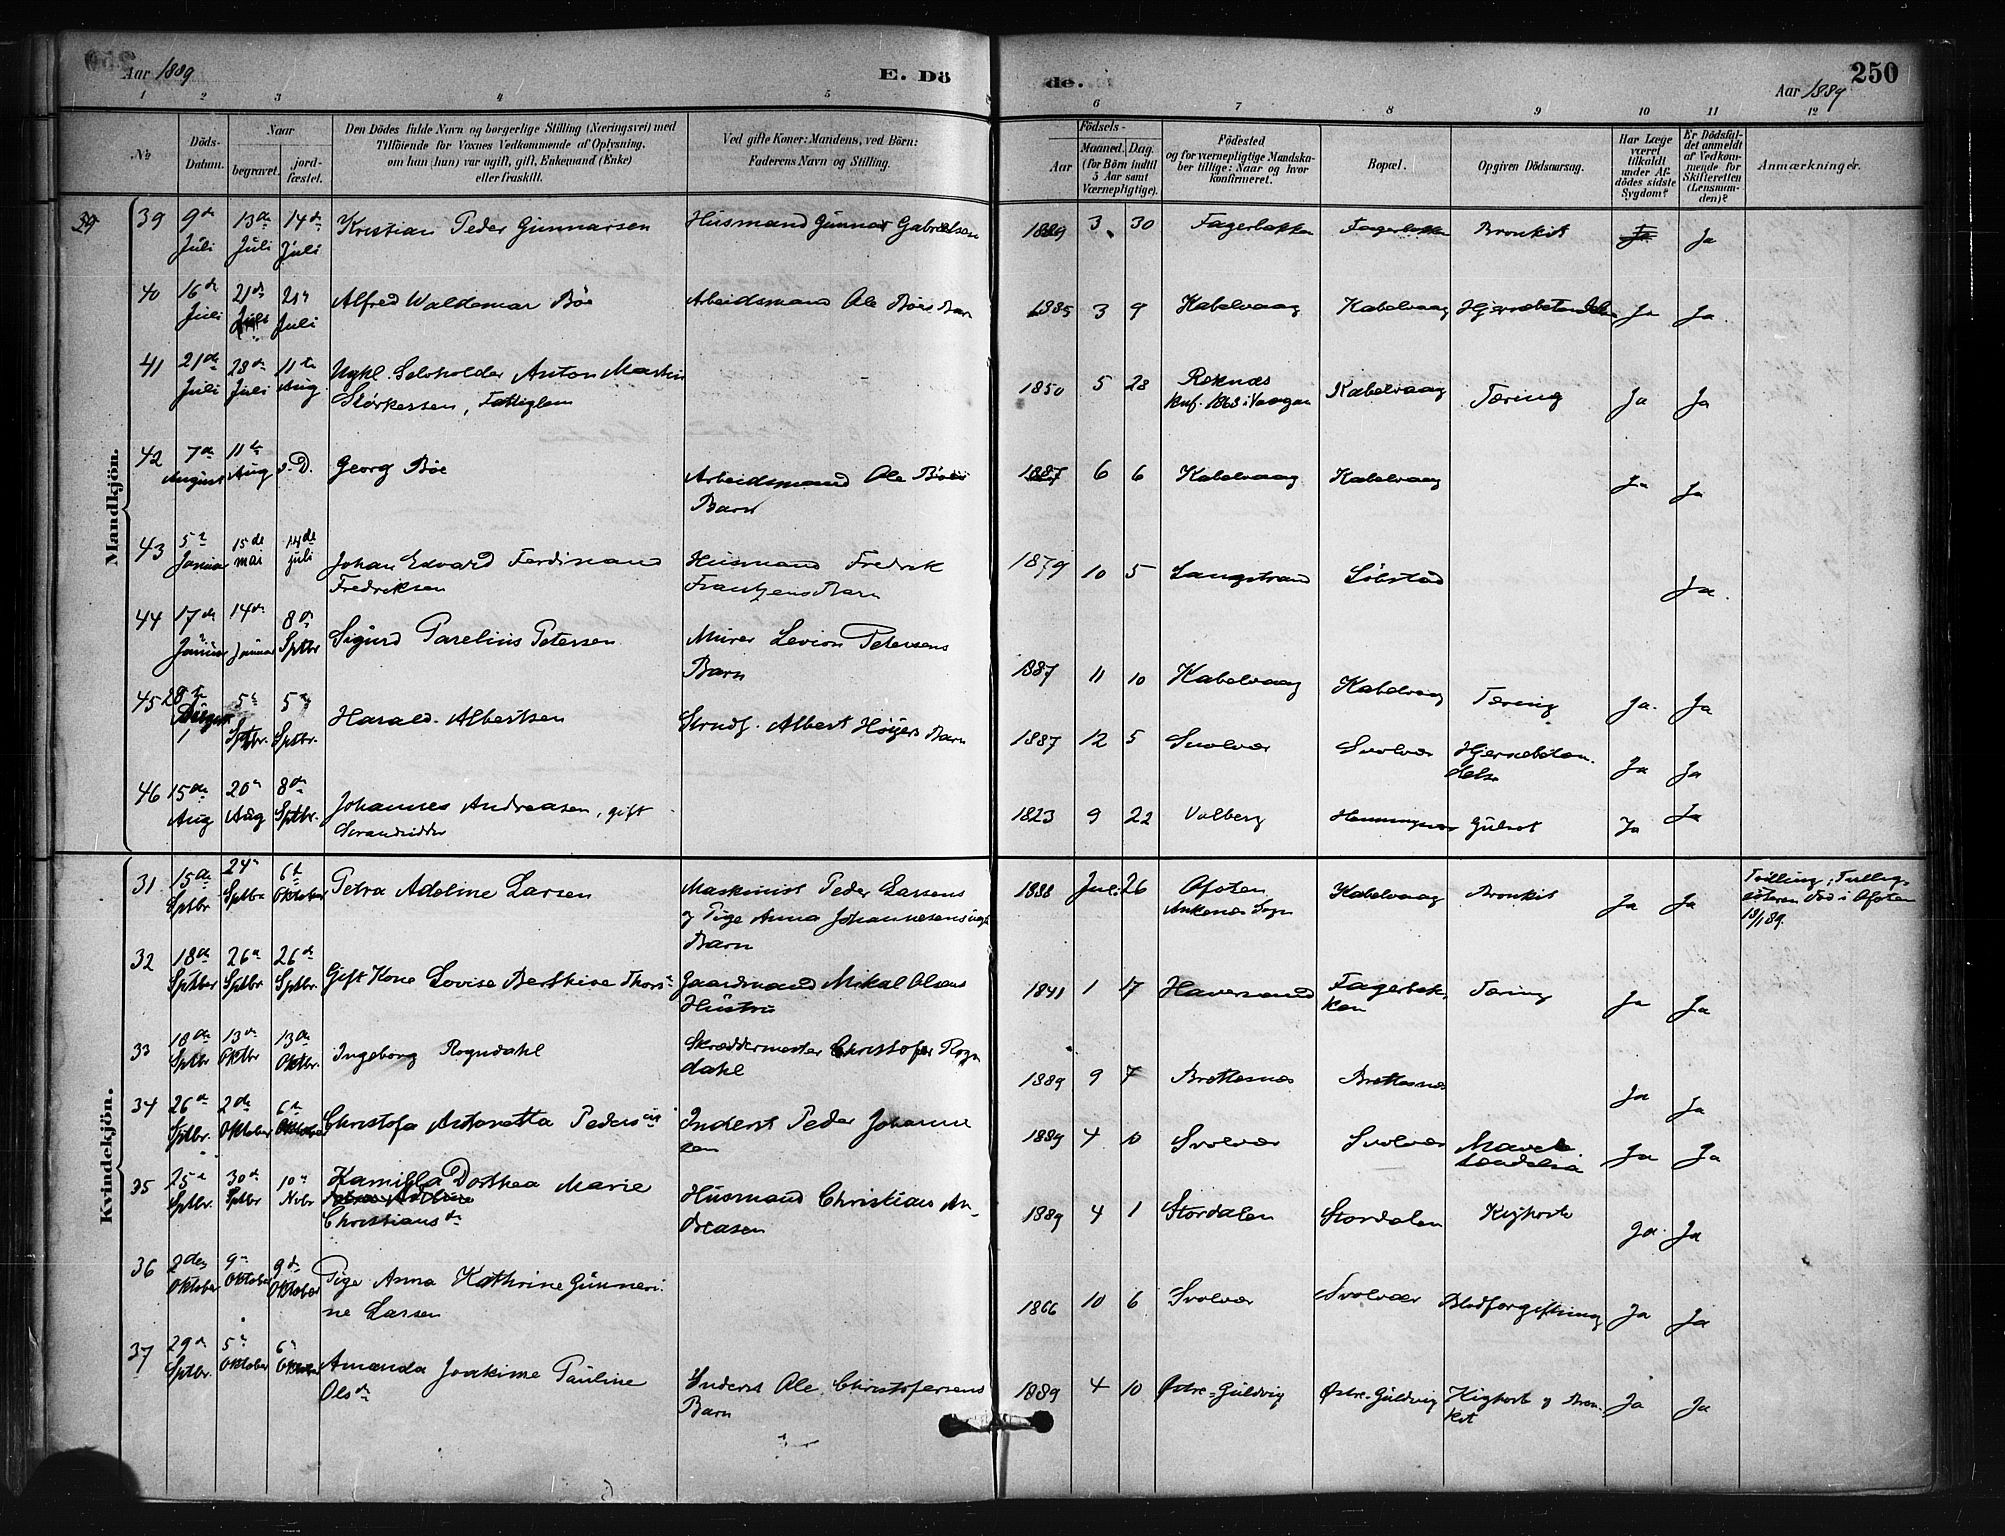 Aar 1889
E. Dö
de.
Aar 1889
250
1 2 3 4 5 6 7 8 9 10 11 12
No
Döds-Datum.
Naar
begravet.
jordfæstet.
Den Dödes fulde Navn og borgerlige Stilling (Næringsvei) med
Tilföiende for Voxnes Vedkommende af Oplysning,
om han (hun) var ugift, gift, Enkemand (Enke)
eller fraskilt.
Ved gifte Koner: Mandens, ved Börn:
Faderens Navn og Stilling.
Födsels-
Aar
Maaned. Dag.
(for Börn indtil
5 Aar samt
Værnepligtige).
Födested
og for værnepligtige Mandska-
ber tillige: Naar og hvor
konfirmeret.
Bopæl.
Opgiven Dödsaarsag.
Har Læge
været
tilkaldt
under Af-
dödes sidste
Sygdom?
Er Dödsfal-
det anmeldt
af Vedkom-
mende for
Skifteretten
(Lensman-
den)?
Anmærkninger.
Mandkjön.
39 9de Juli 13de Juli 14de Juli Kristian Peder Gunnarsen Husmand Gunnar Gabrielsen 1889 3 30 Fagerbakken Fagerbakken Bronkit Ja Ja
40 16de Juli 21de Juli 21de Juli Alfred Waldemar Böe Arbeidsmand Ole Böes Barn 1885 3 9 Kabelvaag Kabelvaag Hjernebetændelse Ja Ja
41 21de Juli 28de Juli 11te Aug Ugkl. Selvholder Anton Martin
Størkersen, Fattiglem 1850 5 28 Reknæs
Knf. 1868 i Vaagan Kabelvaag Tæring Ja Ja
42 7de August 11te Aug s.D. Georg Böe Arbeidsmand Ole Böes
Barn 1887 6 6 Kabelvaag Kabelvaag Ja Ja
43 5te Januar 15de mai 14de juli Johan Edvard Ferdinand
Fredriksen Husmand Fredrik
Frantzens Barn 1879 10 5 Langstrand Löbstad Ja.
44 17de Januar 14de Januar 8de Sptbr Sigurd Parelius Petersen Murer Levion Petersens
Barn 1887 11 10 Kabelvaag Kabelvaag Tæring Ja. Ja
45 28de August 5te Sptbr. 5te Sptbr. Harald Albertsen Strnds. Albert Höiers Barn 1887 12 5 Svolvær Svolvær Hjernebetæn-
delse Ja Ja
46 15de Aug 20de Aug 8de Sptbr. Johannes Andreasen, gift
Strandsidder 1823 9 22 Valberg Henningsvær Gulsot Ja Ja
Kvindekjön.
31 15de Sptbr 24de Sptbr 6te Oktober Petra Adeline Larsen Maskinist Peder Larsens
og Pige Anna Johannesens uægte
Barn 1888 Juli 26 Afoten
Ankenæs Sogn Kabelvaag Bronkit Ja Ja Tvilling; Tvilling-
søteren död i Afoten
18/1 89.
32 18de Sptbr 26de Sptbr 26de Sptbr. Gift Kone Lovise Berthine Thorsd Gaardmand Mikal Olsens
Hustru 1841 1 17 Haversand Fagerbak-
ken Tæring Ja Ja
33 18de Sptbr 13de Oktbr 13de Oktbr. Ingeborg Rogndahl Skræddermester Christofer Rogn
dahl 1889 9 7 Brettesnæs Brettesnæs Ja Ja
34 26de Sptbr. 2de Oktober 6te Oktober Christofa Antonetta Pedersdt Inderst Peder Johanne
sen 1889 4 0 Svolvær Svolvær Mavebe-
tændelse Ja Ja
35 25de Sptbr. 30de Sptbr 10de Nvbr Kamilla Dorthea Marie
Petra Adeline
Christiansdt Husmand Christian An-
dreasen 1889 4 1 Stordalen Stordalen Kighoste Ja. Ja
36 2den Oktober 9de Oktober 9de Oktober Pige Anna Kathrine Gunneri-
ne Larsen 1866 10 6 Svolvær Svolvær Blodforgiftning Ja Ja
37 29de Sptbr. 5te Oktober 6te Oktober Amanda Joakime Pauline
Olsdt Inderst Ole Christofersens
Barn 1889 4 10 Östre-Guldvig Östre-Guldvig Kighoste og Bron-
kit Ja Ja